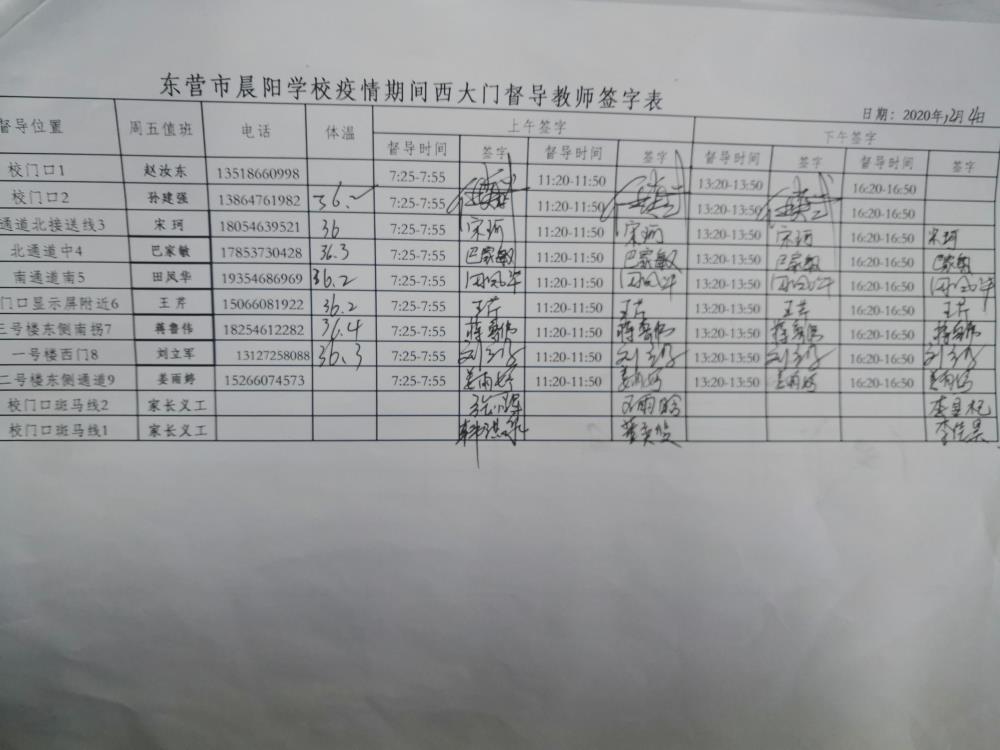 东营市晨阳学校疫情期间西大门督导教师签字表
日期：2020年12月4日
督导位置 周五值班 电话 体温 上午签字 下午签字
督导时间 签字 督导时间 签字 督导时间 签字 督导时间 签字
校门口1 赵汝东 13518660998 7:25-7:55 11:20-11:50 13:20-13:50 16:20-16:50
校门口2 孙建强 13864761982 7:25-7:55 11:20-11:50 13:20-13:50 16:20-16:50
通道北接送线3 宋珂 18054639521 36 7:25-7:55 宋珂 11:20-11:50 宋珂 13:20-13:50 宋珂 16:20-16:50 宋珂
北通道中4 巴家敏 17853730428 36.3 7:25-7:55 巴家敏 11:20-11:50 巴家敏 13:20-13:50 巴家敏 16:20-16:50 巴家敏
南通道南5 田凤华 19354686969 36.2 7:25-7:55 田凤华 11:20-11:50 田凤华 13:20-13:50 田凤华 16:20-16:50 田凤华
门口显示屏附近6 王芹 15066081922 36.2 7:25-7:55 王芹 11:20-11:50 王芹 13:20-13:50 王芹 16:20-16:50 王芹
三号楼东侧南拐7 蒋鲁伟 18254612282 36.4 7:25-7:55 蒋鲁伟 11:20-11:50 蒋鲁伟 13:20-13:50 蒋鲁伟 16:20-16:50 蒋鲁伟
一号楼西门8 刘立军 13127258088 36.3 7:25-7:55 刘立军 11:20-11:50 刘立军 13:20-13:50 刘立军 16:20-16:50 刘立军
二号楼东侧通道9 姜雨婷 15266074573 7:25-7:55 姜雨婷 11:20-11:50 姜雨婷 13:20-13:50 姜雨婷 16:20-16:50 姜雨婷
校门口斑马线2 家长义工
校门口斑马线1 家长义工 李佳昊